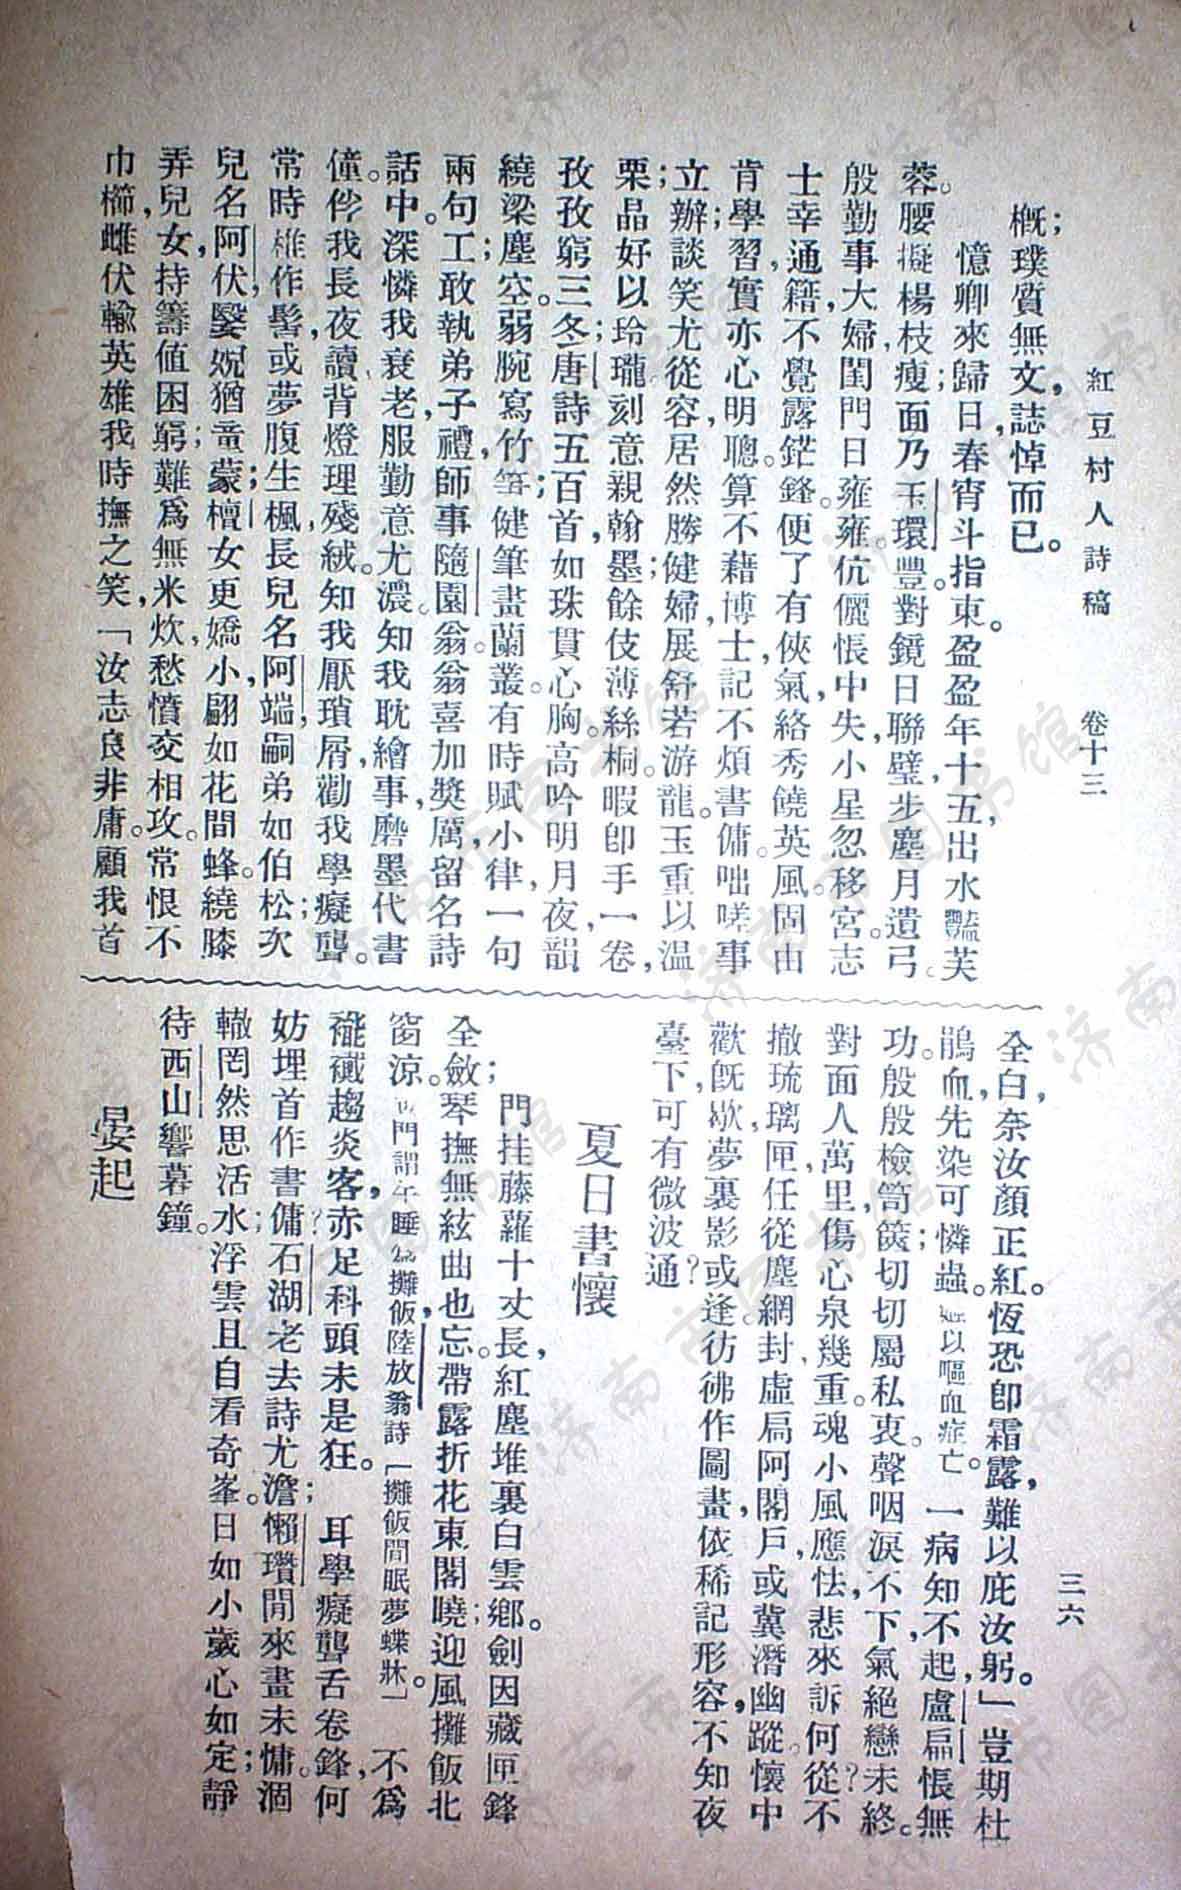 紅豆村人詩稿　卷十三　三六
概；璞質無文，誌悼而已。
憶卿來歸日，春宵斗指東。盈盈年十五，出水豔芙
蓉。腰擬楊枝瘦；面乃玉環豐。對鏡日聯璧，步塵月遺弓。
殷勤事大婦，閨門日雍雍。伉儷悵中失，小星忽移宮。志
士幸通籍，不覺露鋩鋒。便了有俠氣，絡秀饒英風。固由
肯學習，實亦心明聰。算不藉博士，記不煩書傭。咄嗟事
立辦；談笑尤從容。居然勝健婦，展舒若游龍。玉重以溫
栗；晶好以玲瓏。刻意親翰墨，餘伎薄絲桐。暇卽手一卷，
孜孜窮三冬；唐詩五百首，如珠貫心胸。高吟明月夜，韻
繞梁塵空。弱腕寫竹箏；健筆畫蘭叢。有時賦小律，一句
兩句工；敢執弟子禮，師事隨園翁。翁喜加獎厲，留名詩
話中。深憐我衰老，服勤意尤濃。知我耽繪事，磨墨代書
僮。伴我長夜讀，背燈理殘絨。知我厭瑣屑，勸我學癡聾。
常時椎作髻，或夢腹生楓。長兒名阿端，嗣弟如伯松；次
兒名阿伏，嫛婗猶童蒙；檀女更嬌小，翩如花間蜂。繞膝
弄兒女，持籌值困窮。難爲無米炊，愁憤交相攻。常恨不
巾櫛，雌伏輸英雄。我時撫之笑，「汝志良非庸。顧我首
全白，奈汝顏正紅。恆恐卽霜露，難以庇汝躬。」豈期杜
鵑血，先染可憐蟲。姬以嘔血症亡。一病知不起，盧扁悵無
功。殷殷檢笥篋；切切屬私衷。聲咽淚不下，氣絕戀未終。
對面人萬里，傷心泉幾重。魂小風應怯，悲來訴何從？不
撤琉璃匣，任從塵網封。虛扃阿閣戶，或冀潛幽蹤。懷中
歡旣歇，夢裏影或逢。彷彿作圖畫，依稀記形容。不知夜
臺下，可有微波通？
夏日書懷
門挂藤蘿十丈長，紅塵堆裏白雲鄉。劍因藏匣鋒
全斂；琴撫無絃曲也忘。帶露折花東閣曉；迎風攤飯北
窗涼。西門謂午睡爲攤飯，陸放翁詩「攤飯閒眠夢蝶牀」。不爲
褦襶趨炎客，赤足科頭未是狂。　耳學癡聾舌卷鋒，何
妨埋首作書傭？石湖老去詩尤澹；懶瓚閒來畫未慵。涸
轍罔然思活水；浮雲且自看奇峯。日如小歲心如定，靜
待西山響暮鐘。
晏起